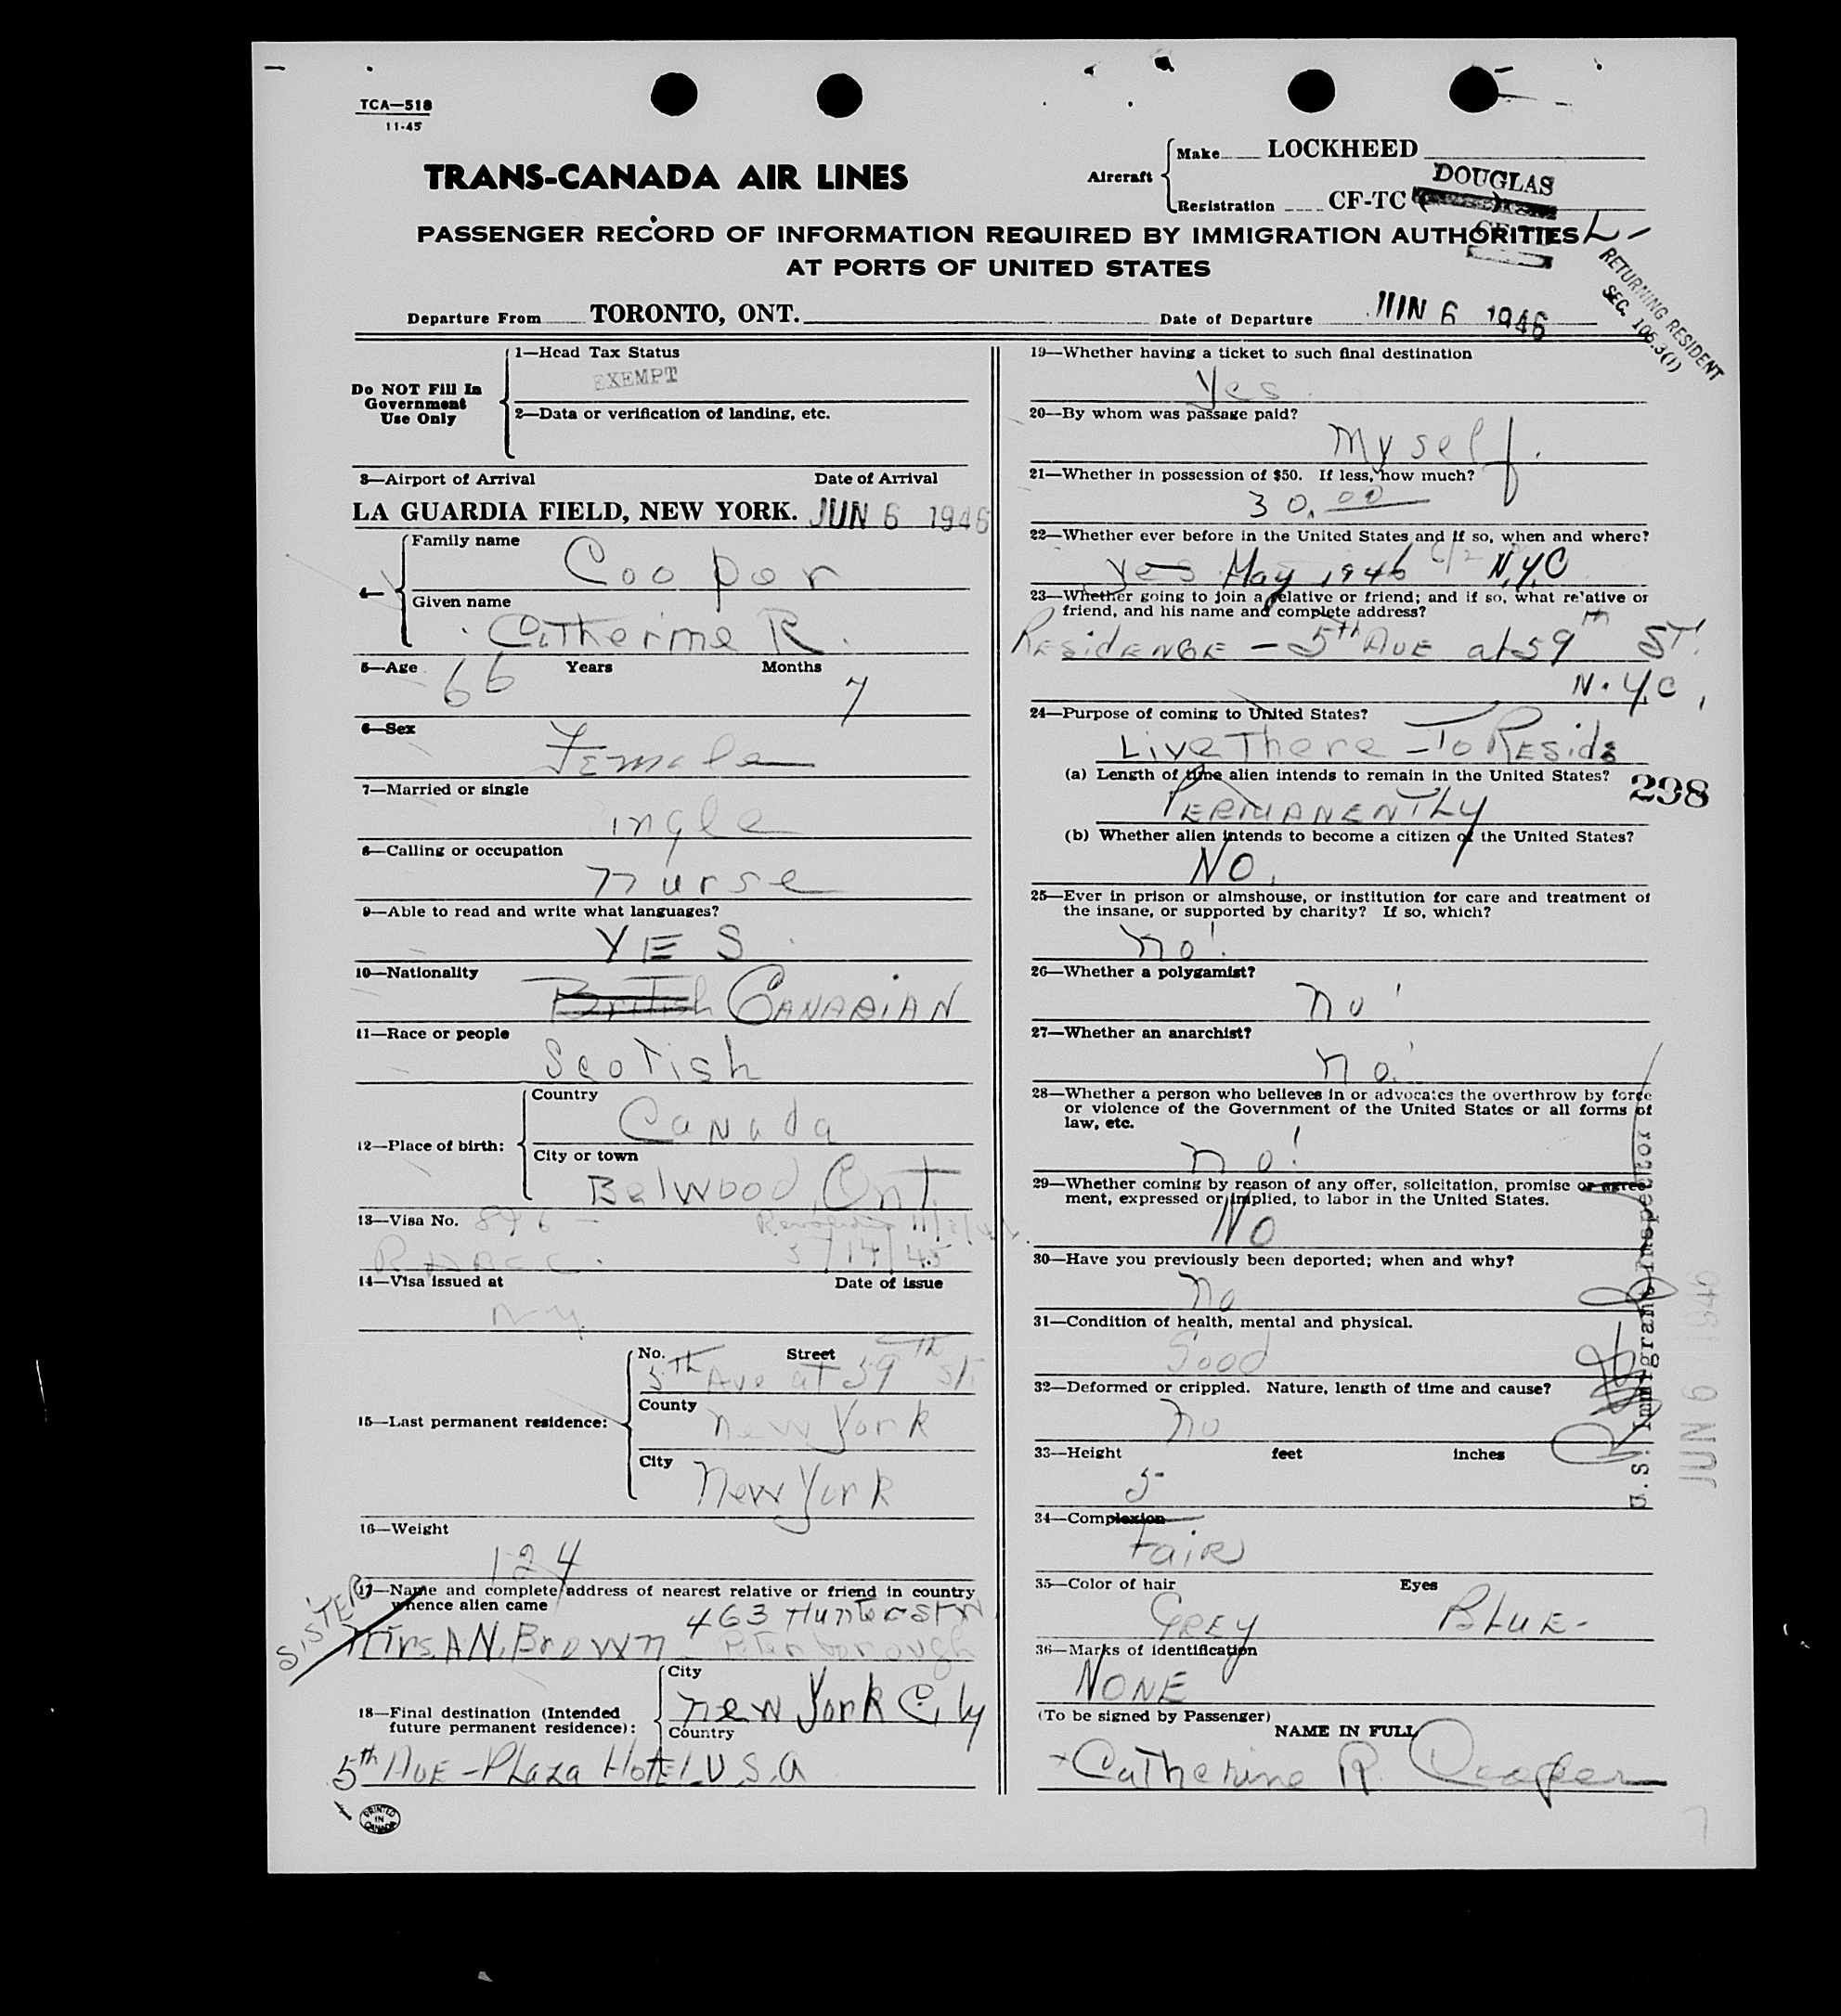 TCA—518
11-45
TRANS-CANADA AIR LINES
Aircraft
Make LOCKHEED
DOUGLAS
Registration CF-TC
PASSENGER RECORD OF INFORMATION REQUIRED BY IMMIGRATION AUTHORITIES
AT PORTS OF UNITED STATES
RETURNING RESIDENT
SEC. 106.3(1)
Departure From TORONTO, ONT.
Date of Departure JUN 6 1946
Do NOT Fill In
Government
Use Only
1—Head Tax Status
EXEMPT
2—Data or verification of landing, etc.
3—Airport of Arrival Date of Arrival
LA GUARDIA FIELD, NEW YORK. JUN 6 1946
4—
Family name
Cooper
Given name
Catherine R.
5—Age 66 Years Months 7
6—Sex
Female
7—Married or single
ingle
8—Calling or occupation
Nurse
9—Able to read and write what languages?
YES
10—Nationality
British CANADIAN
11—Race or people
Scotish
12—Place of birth:
Country
Canada
City or town
Belwood, Ont.
13—Visa No. 896
5/14/45
14—Visa issued at Date of issue
N.Y.
15—Last permanent residence:
No. Street
5th Ave at 59th St.
County
New York
City
New York
16—Weight
124
17—Name and complete address of nearest relative or friend in country
whence alien came
SISTER
463 Hunter St W
Mrs. A N. Brown Peterborough
18—Final destination (Intended
future permanent residence):
City
New York City
Country
5th AVE - PLaza HotEl U.S.A
PRINTED
IN
CANADA
19—Whether having a ticket to such final destination
Yes
20—By whom was passage paid?
Myself.
21—Whether in possession of $50. If less, how much?
30.00
22—Whether ever before in the United States and if so, when and where?
Yes May 1946 N.Y.C
23—Whether going to join a relative or friend; and if so, what relative or
friend, and his name and complete address?
RESidENCE - 5th AVE at 59th ST.
N.Y.C.
24—Purpose of coming to United States?
Live There - To RESide
(a) Length of time alien intends to remain in the United States?
298
PERMANENTLY
(b) Whether alien intends to become a citizen of the United States?
NO.
25—Ever in prison or almshouse, or institution for care and treatment of
the insane, or supported by charity? If so, which?
No!
26—Whether a polygamist?
No!
27—Whether an anarchist?
No!
28—Whether a person who believes in or advocates the overthrow by force
or violence of the Government of the United States or all forms of
law, etc.
No!
29—Whether coming by reason of any offer, solicitation, promise or agree-
ment, expressed or implied, to labor in the United States.
NO
30—Have you previously been deported; when and why?
No
31—Condition of health, mental and physical.
Good
32—Deformed or crippled. Nature, length of time and cause?
No
33—Height feet inches
5
34—Complexion
FaiR
35—Color of hair Eyes
GREY BLUE-
36—Marks of identification
NONE
(To be signed by Passenger)
NAME IN FULL
Catherine R. Cooper
U.S. Immigrant Inspector
JUN 6 1946